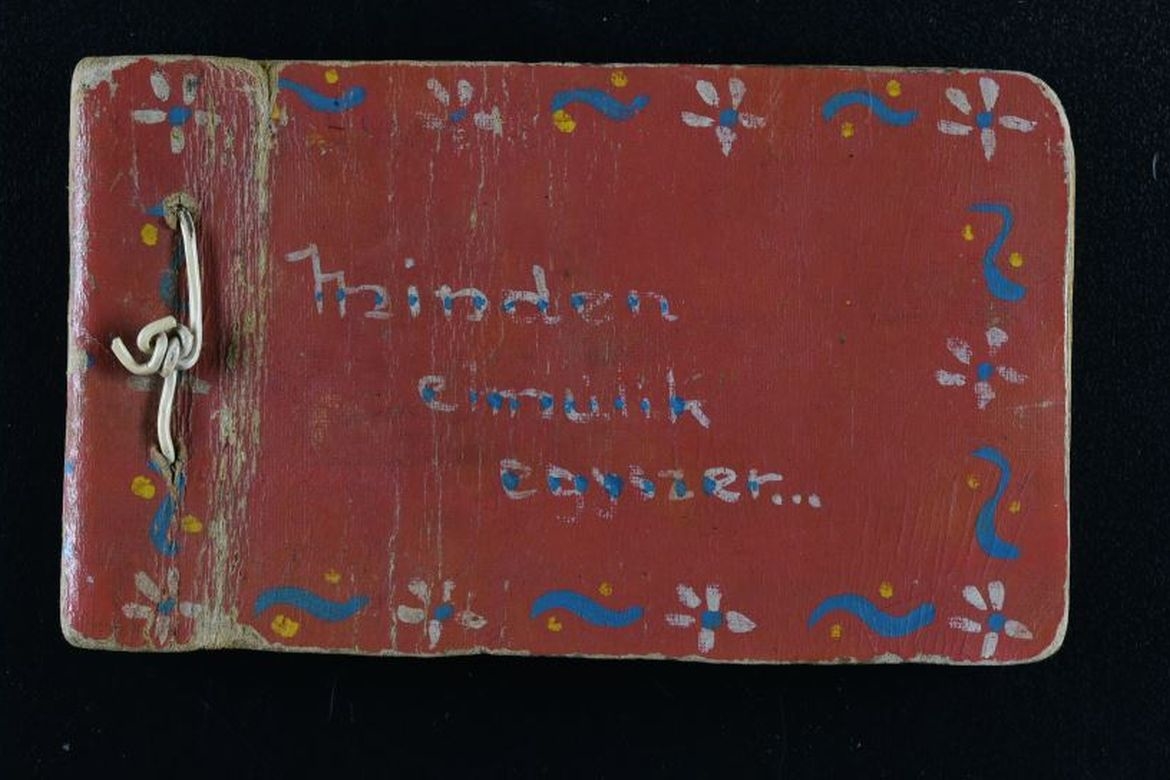 Minden
elmulik
egyszer...